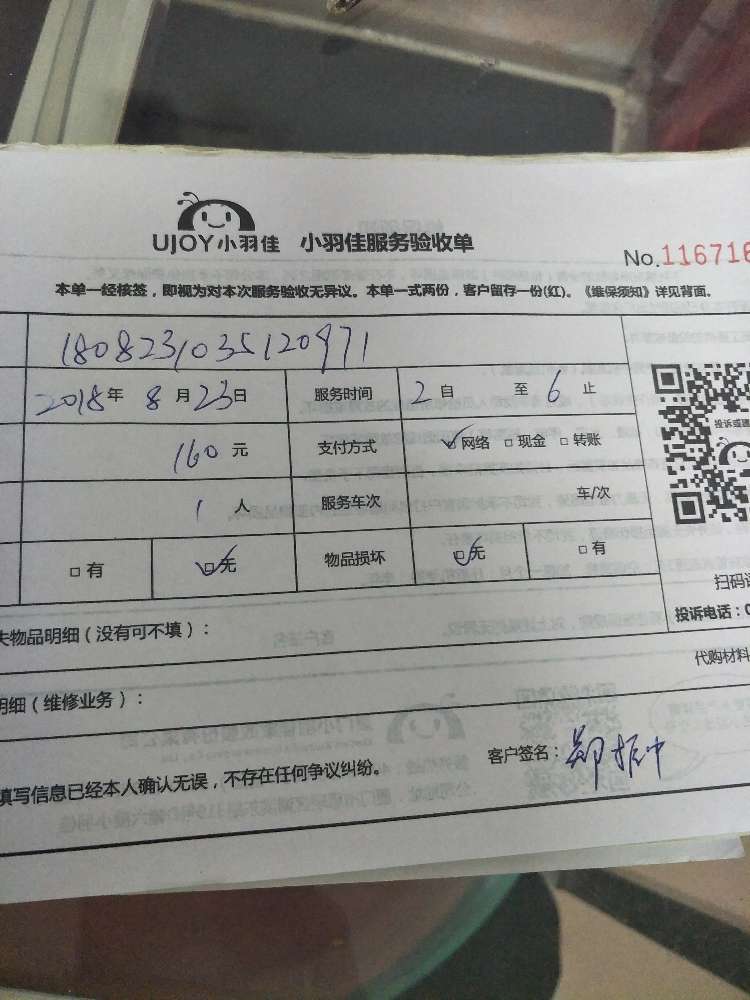 UJOY小羽佳 小羽佳服务验收单
No.116716
本单一经核签，即视为对本次服务验收无异议。本单一式两份，客户留存一份(红)。《维保须知》详见背面。
1808231035120971
2018年 8月23日 服务时间 2 自 至 6 止
160元 支付方式 网络 现金 转账
投诉或建
1 人 服务车次 车/次
有 无 物品损坏 无 有
扫码
失物品明细（没有可不填）：
投诉电话：0
代购材料
明细（维修业务）：
客户签名：郑振中
填写信息已经本人确认无误，不存在任何争议纠纷。